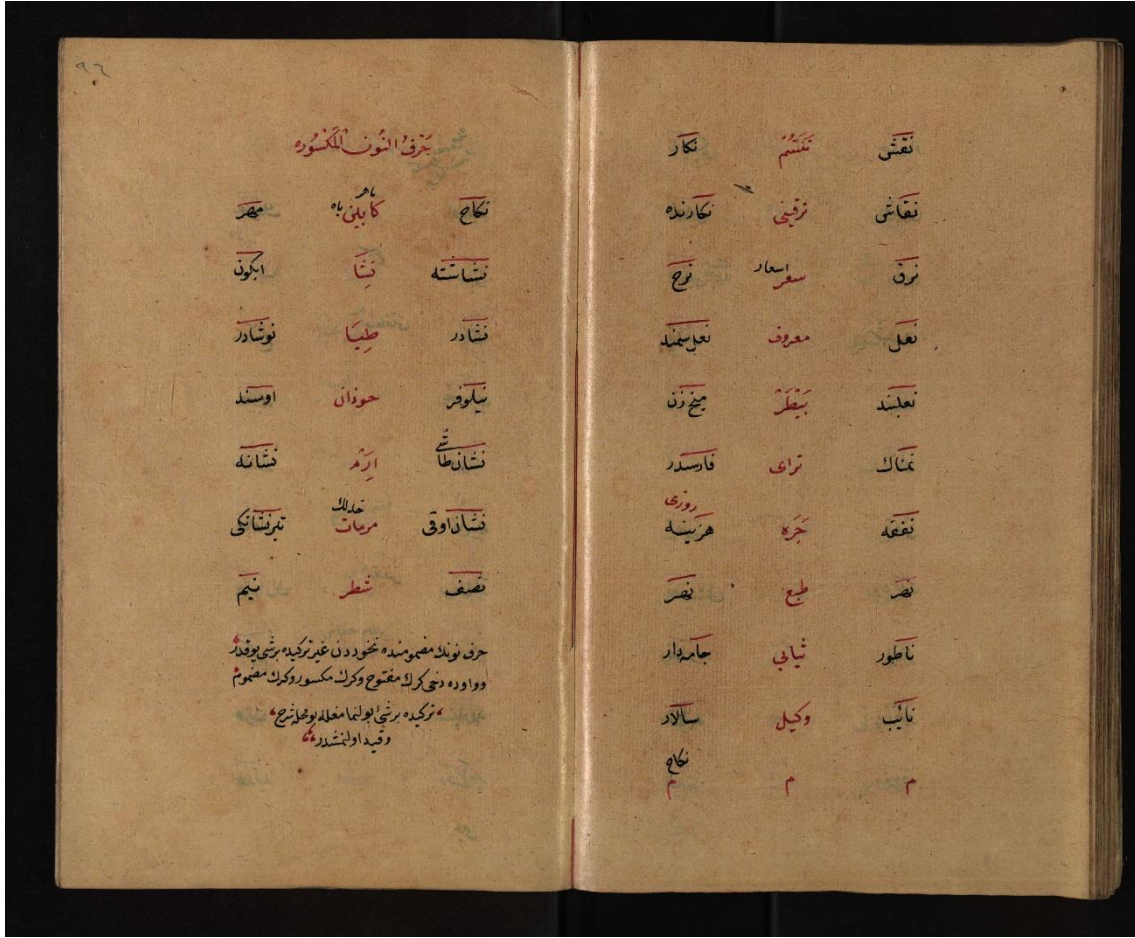 نقش نكار
نقاش ترقيني نكارنده
نرق سعر اسعار نرخ
نعل معروف نعل سمند
نعلبند بيطر ميخ زن
نمناك تراى
نفقه جره روزى هزينه
نهر طبع نهر
ناطور ثيابي جامه دار
نائب وكيل سالار
م م م
نكاح
٩٦
حرف النون المكسوره
نكاح كابيني ماهر باه مهر
نشاشته نشا ابكون
نشادر طيا نوشادر
نيلوفر حوذان اوسند
نشان طاشى ارم نشانه
نشان اوقى مرمات خدلك تيرنشانكى
نصف شطر نيم
حرف نونك مضمومنده نخوددن غير تركيده برشى يوقدر
وواوده دخى كرك مفتوح وكرك مكسور وكرك مضموم
تركيده برشئ بولنمامغله بو محله شرح
وقيد اولنمشدر